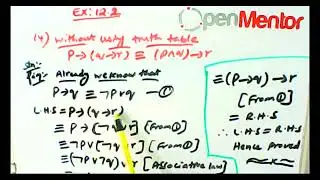 Ex: 12.2
OpenMentor
(4) without using truth table
P→(q→r) ≡ (P∧q)→r
Already we know that
P→q ≡ ¬P∨q —①
L.H.S = P→(q→r)
≡ P→(¬q∨r) [From ①]
≡ ¬P∨(¬q∨r) [From ①]
≡ (¬P∨¬q)∨r [Associative law]
≡ (P→q)→r
[From ①]
= R.H.S
∴ L.H.S = R.H.S
Hence Proved